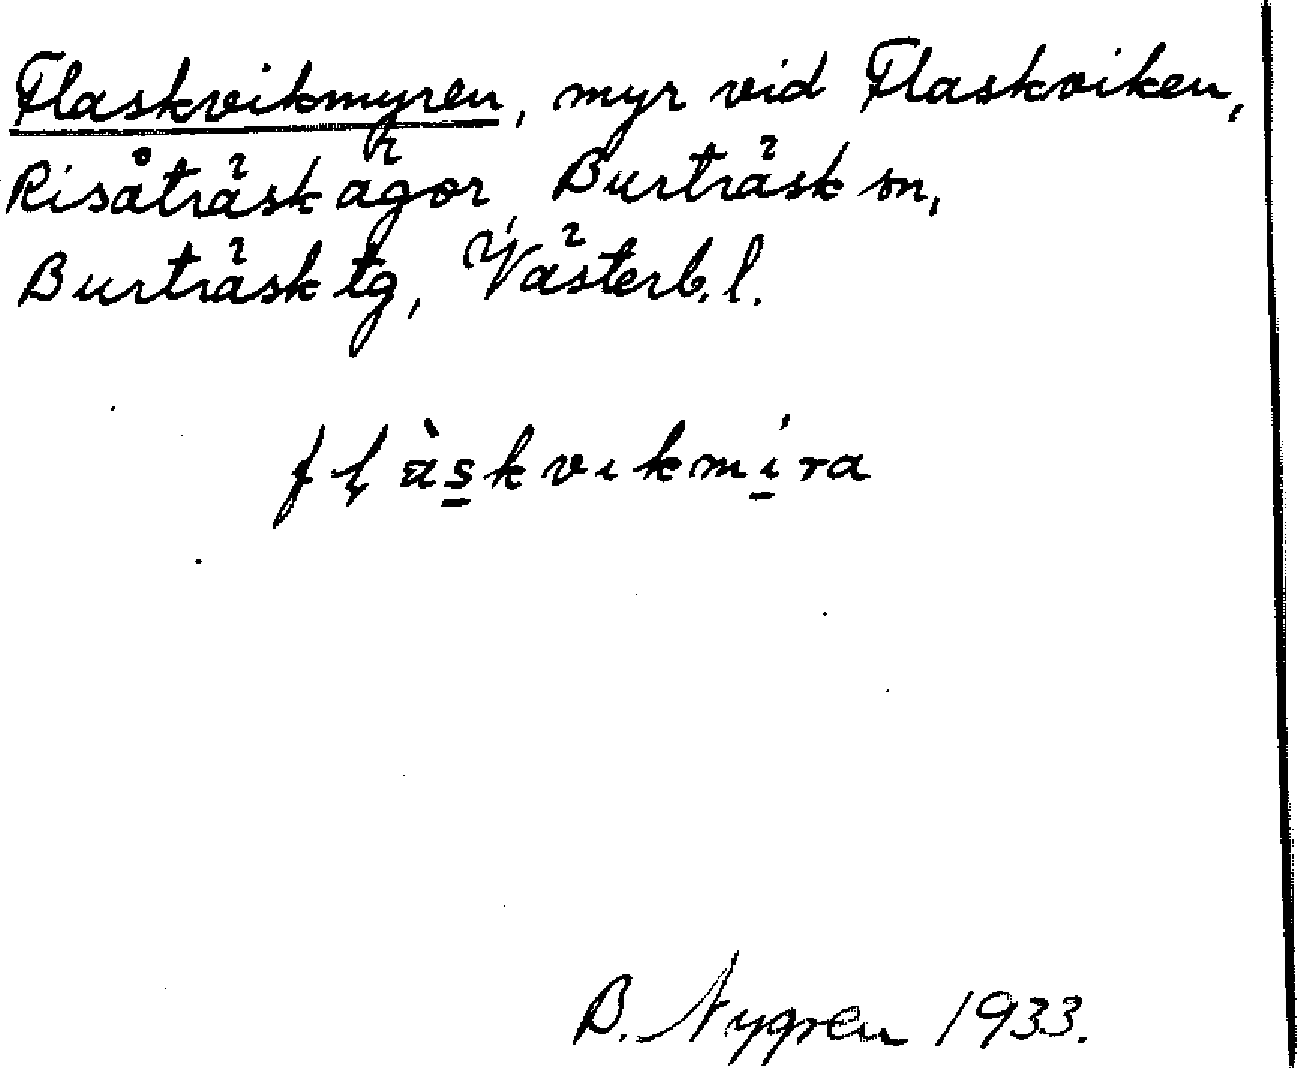 Flaskvikmyren, myr vid Flaskviken,
Risåträsk ägor, Burträsk sn,
Burträsk tg, Västerb. l.
flàskvikmíra
B. Nygren 1933.